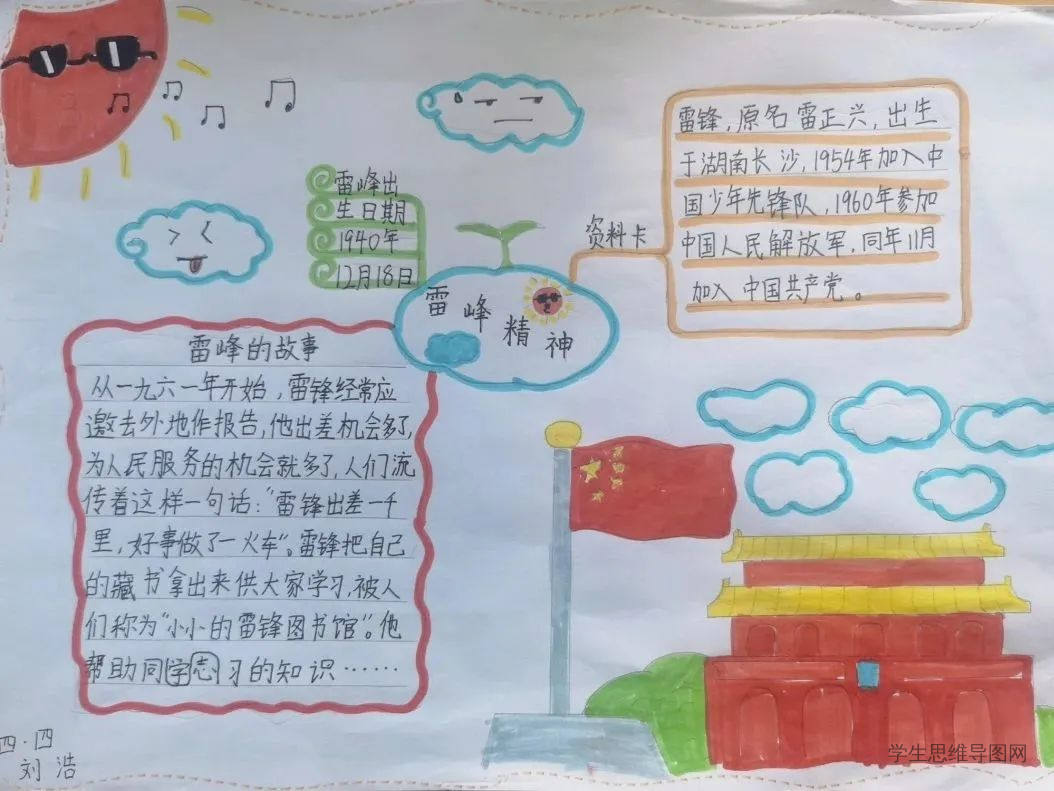 雷峰出
生日期
1940年
12月18日
资料卡
雷锋，原名雷正兴，出生
于湖南长沙，1954年加入中
国少年先锋队，1960年参加
中国人民解放军，同年11月
加入中国共产党。
雷峰精神
雷峰的故事
从一九六一年开始，雷锋经常应
邀去外地作报告，他出差机会多了，
为人民服务的机会就多了，人们流
传着这样一句话：“雷锋出差一千
里，好事做了一火车”。雷锋把自己
的藏书拿出来供大家学习，被人
们称为“小小的雷锋图书馆”。他
帮助同学志习的知识……
四·四
刘浩
学生思维导图网